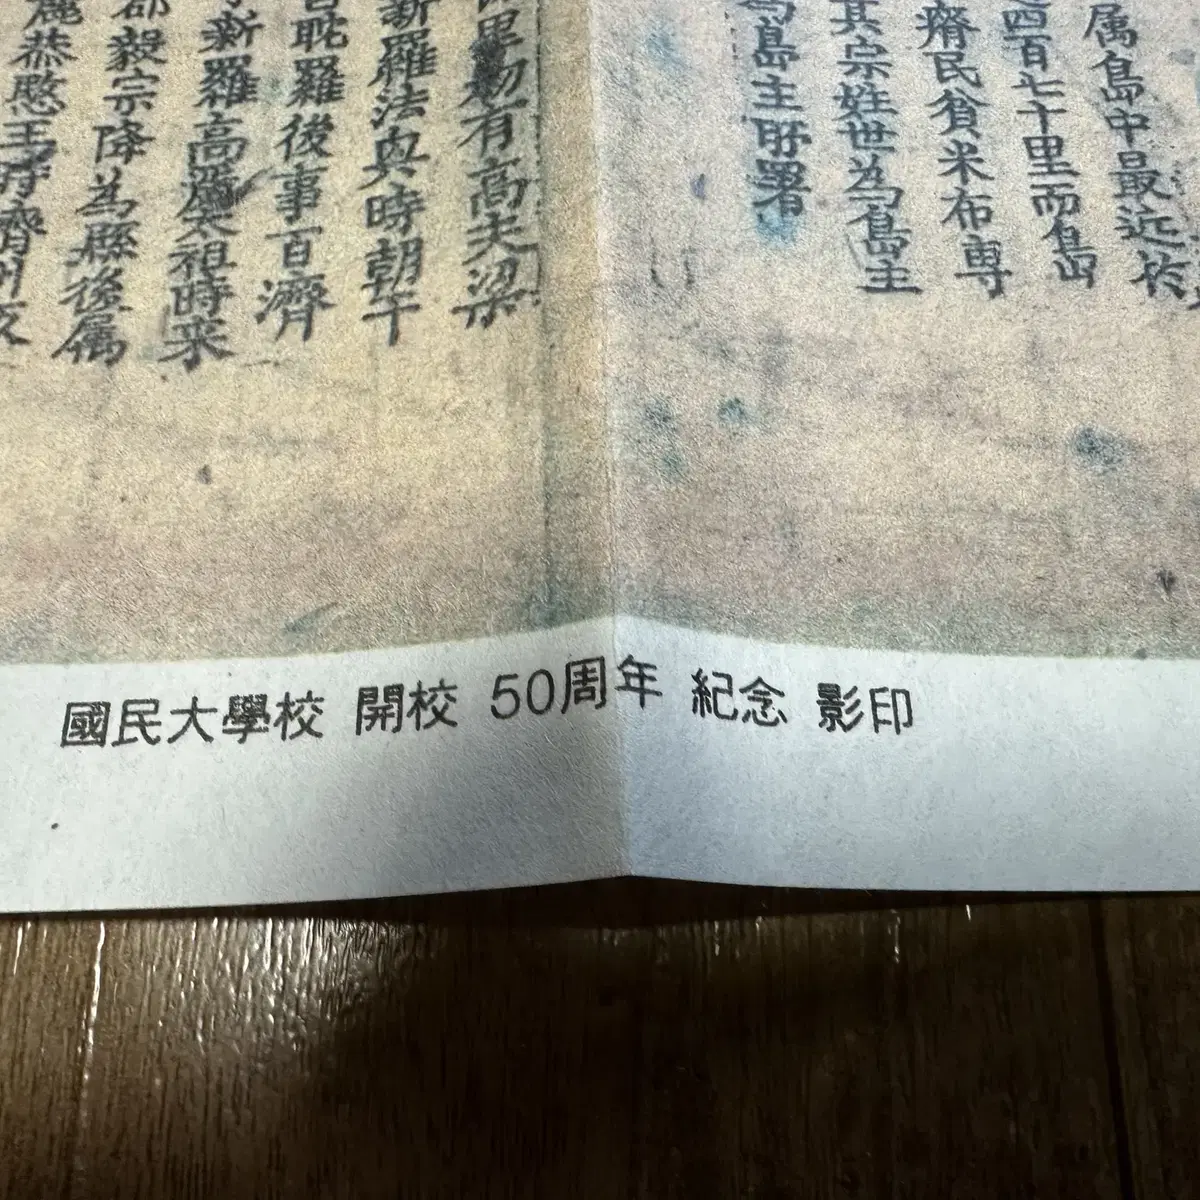 属島中最近於
四百七十里而島
瘠民貧米布専
其宗姓世為島主
為島主所署
有高夫梁
新羅法興時朝午
耽羅後事百濟
新羅高麗太祖時来
郡毅宗降為縣後属
恭愍王時濟州
國民大學校 開校 50周年 紀念 影印